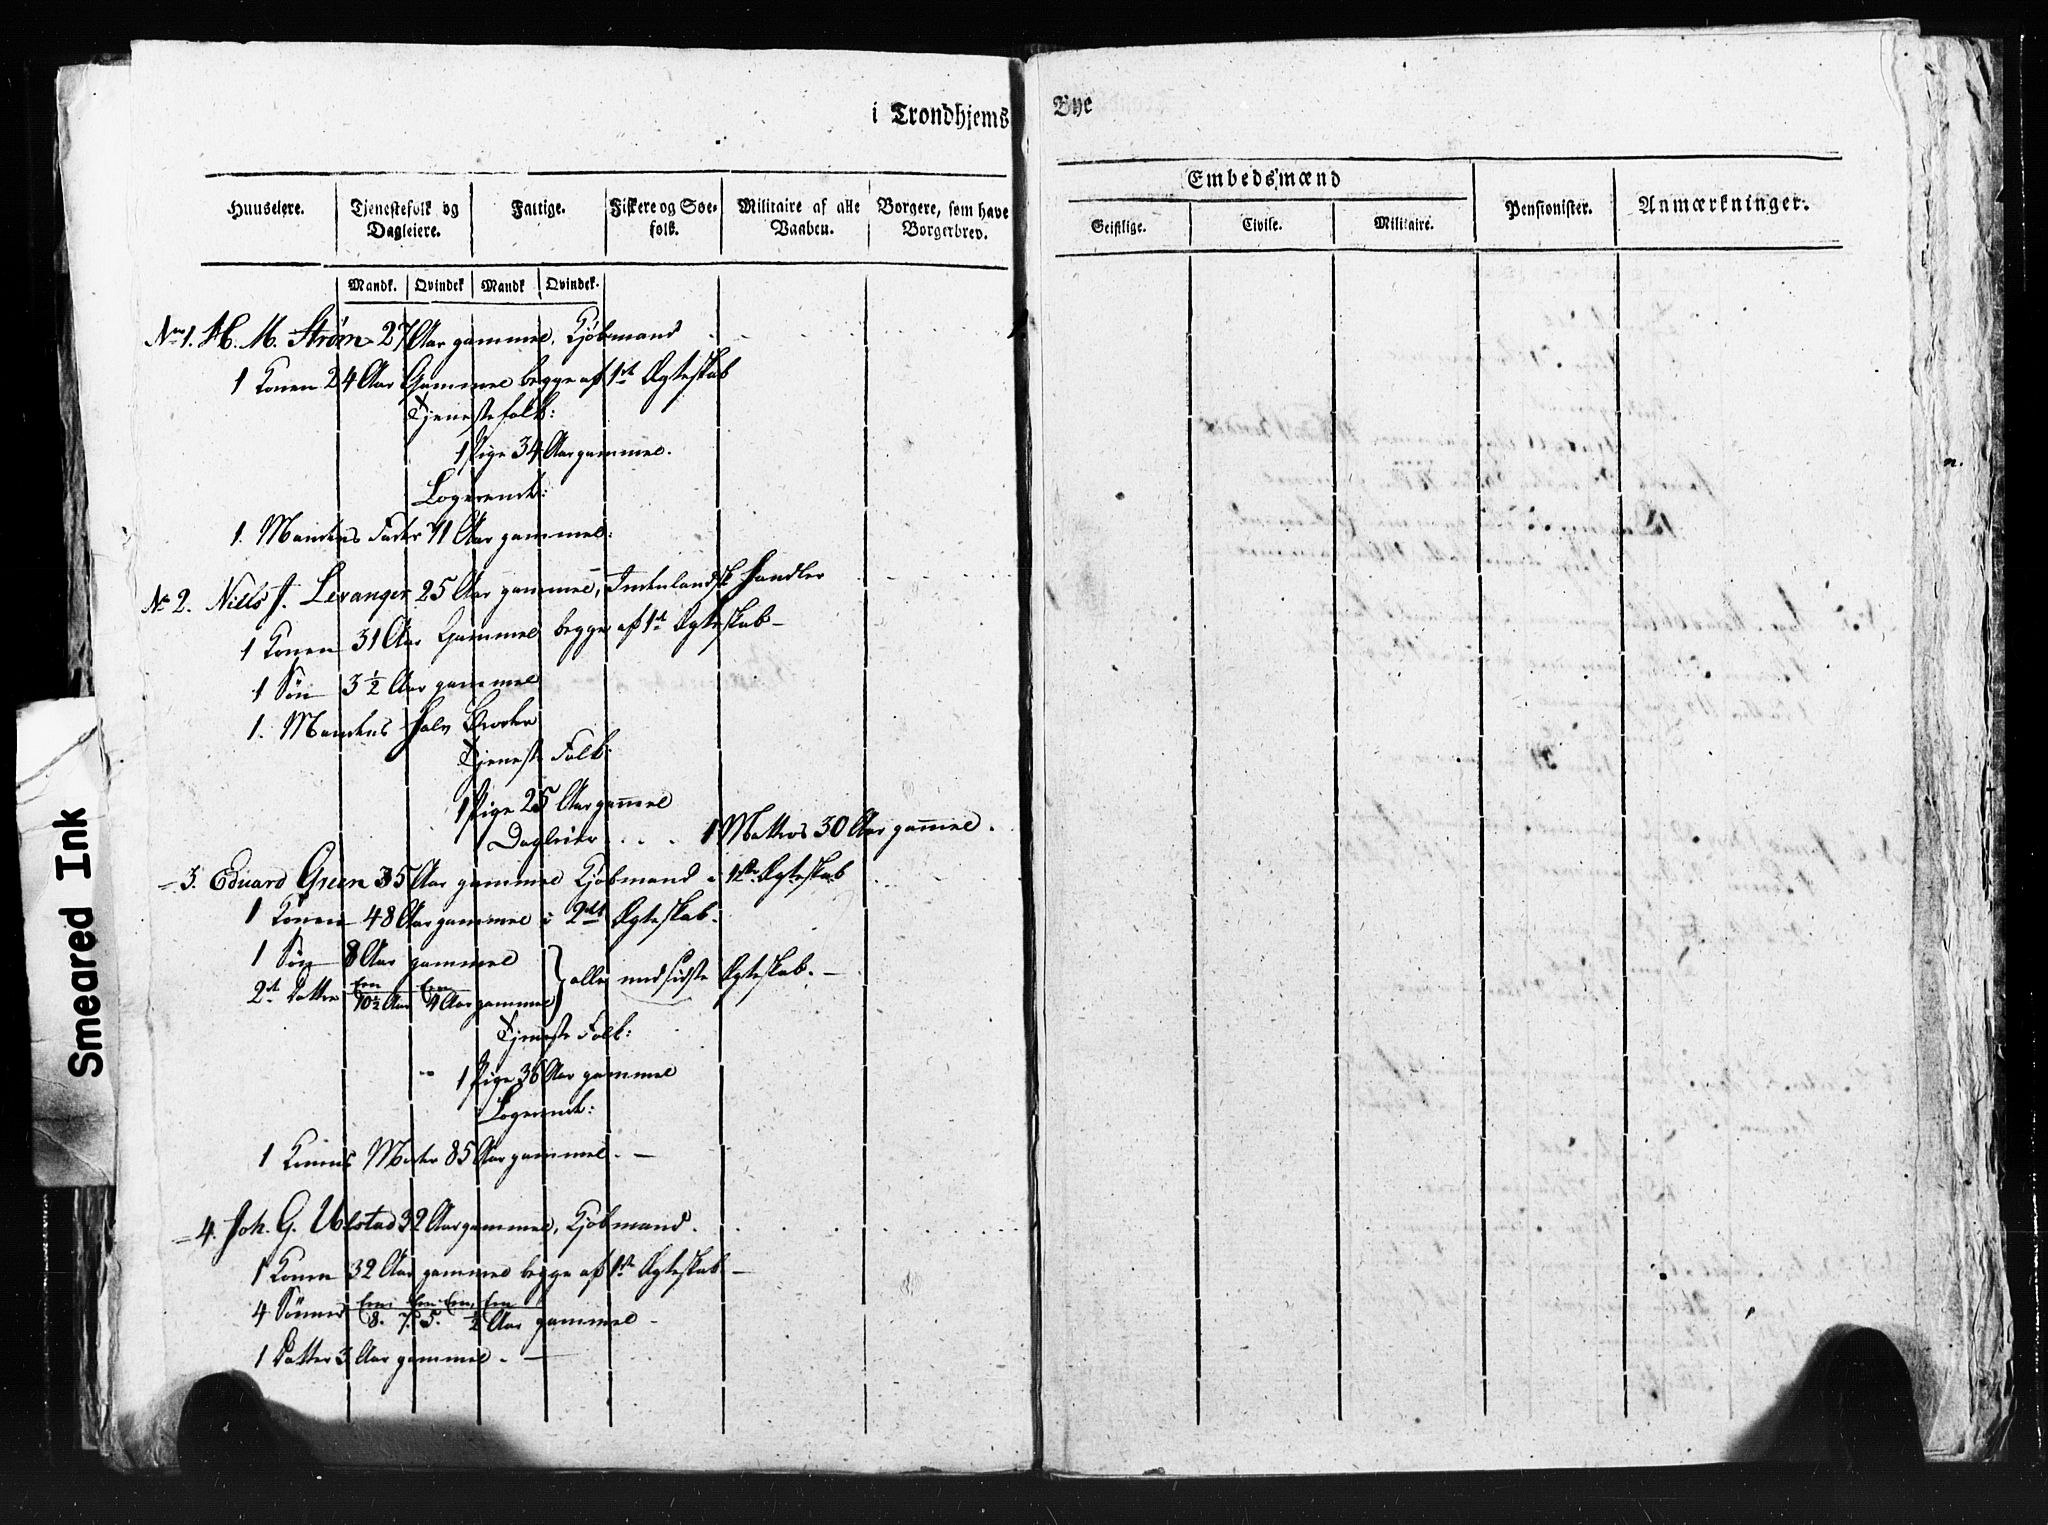 i Trondhjems Bye
Huuseiere. Tjenestefolk og Dagleiere. Fattige. Fiskere og Søe-folk. Militaire af alle Vaaben. Borgere, som have Borgerbrev. Embedsmænd Pensionister. Anmærkninger.
Geistlige. Civile. Militaire.
Mandk. Qvindek Mandk Qvindek.
No 1. H. M. Strøm 27 Aar gammel, Kjöbmand
1 Konen 24 Aar Gammel begge af 1st Ægteskab
Tjenestefolk:
1 Pige 34 Aar gammel.
Logerende:
1. Mandens Fader 71 Aar gammel.
No 2. Niels J. Levanger 25 Aar gammel, Indenlandsk Handler
1 Konen 31 Aar Gammel begge af 1st Ægteskab
1 Sön 3 1/2 Aar gammel
1. Mandens Halv Broder
Tjeneste Folk:
1 Pige 25 Aar gam̄el
Dagleier . . . . 1 Matros 30 Aar gam̄el.
= 3. Eduard Green 35 Aar gammel Kjöbmand i 1ste Ægteskab
1 Konen 48 Aar gammel i 2det Ægteskab.
1 Sön 8 Aar gammel
2de Dattre Een 10 1/2 Aar Een 4 Aar gammel } alle ved sidste Ægteskab. —
Tjeneste Folk:
1 Pige 36 Aar gammel
Logerende:
1 Konens Moder 85 Aar gammel. —
= 4. Joh. G. Ulstad 32 Aar gammel, Kjöbmand.
1 Konen 32 Aar gammel begge af 1ste Ægteskab —
4 Sönner Een 8. Een 7. Een 5. Een 1/2 Aar gammel -
1 Datter 3 Aar gammel. —
Smeared Ink